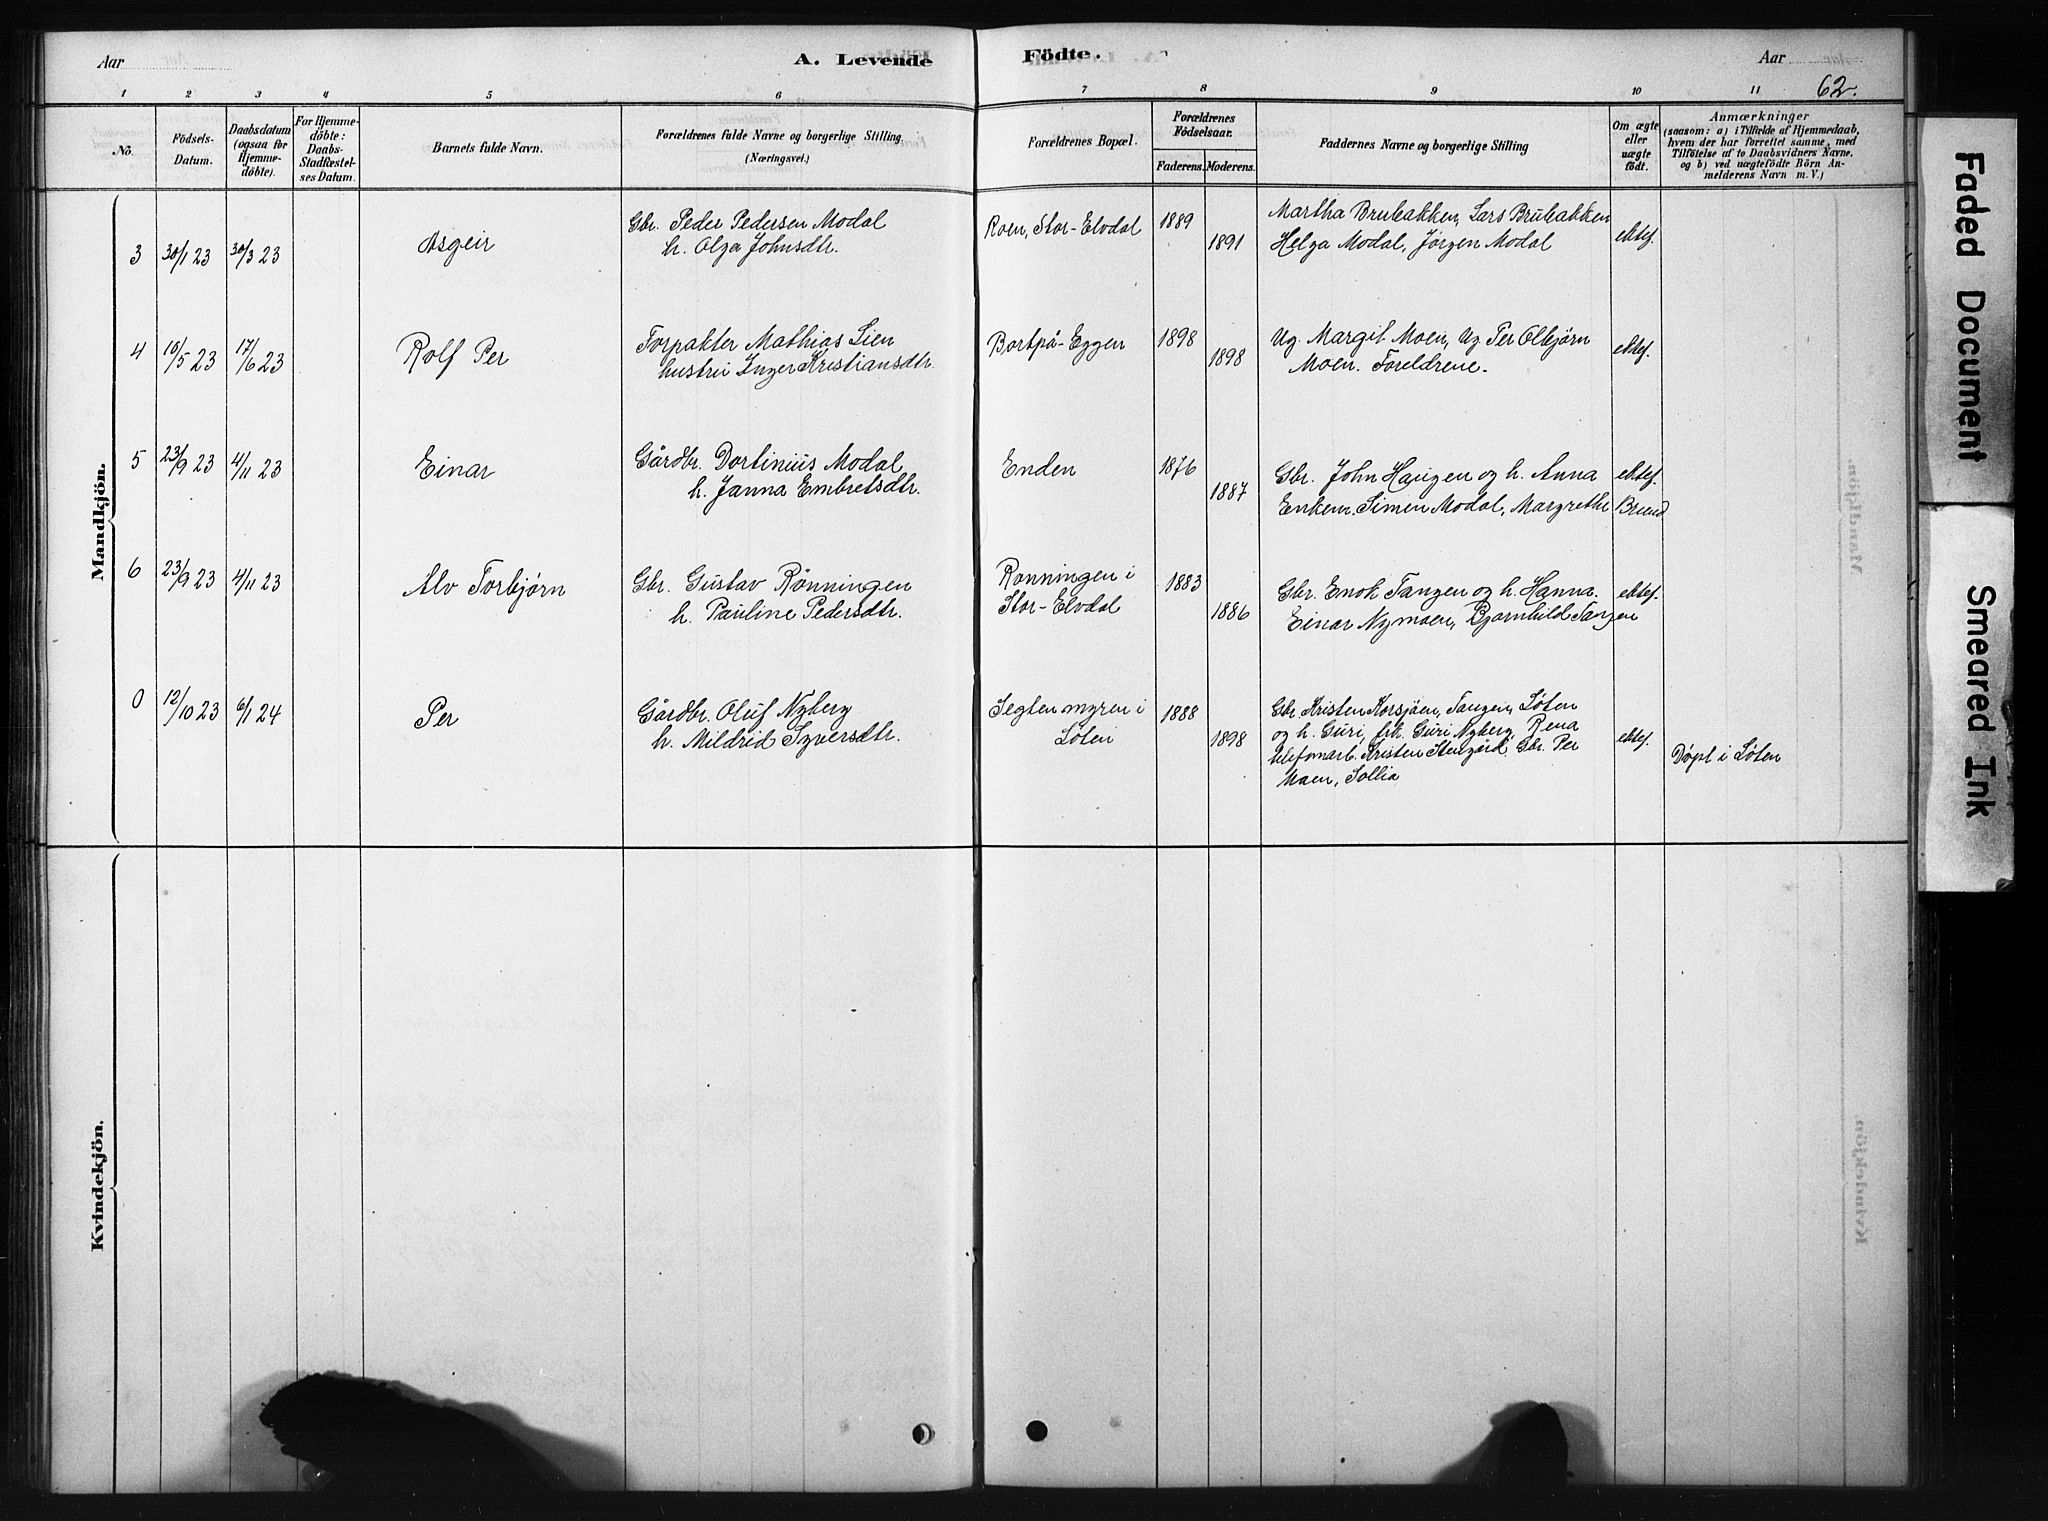 Aar
A. Levende
Födte.
Aar
62.
1 2 3 4 5 6 7 8 9 10 11
No.
Födsels-
Datum.
Daabsdatum
(ogsaa for
Hjemme-
döbte).
For Hjemme-
döbte:
Daabs-
Stadfæstel-
ses Datum.
Barnets fulde Navn.
Forældrenes fulde Navne og borgerlige Stilling.
(Næringsvei.)
Forældrenes Bopæl.
Forældrenes
Födselsaar.
Faderens. Moderens.
Faddernes Navne og borgerlige Stilling
Om ægte
eller
uægte
födt.
Anmærkninger
(saasom: a) i Tilfælde af Hjemmedaab,
hvem der har forrettet samme, med
Tilföielse af to Daabsvidners Navne,
og b) ved uægtefödte Börn An-
melderens Navn m. V.)
Mandkjön.
3 30/1 23 30/3 23 Asgeir
Gbr. Peder Pedersen Modal
h. Olga Johnsdtr.
Roen, Stor-Elvdal
1889
1891
Martha Brubakken, Lars Brubakken
Helga Modal, Jørgen Modal
ektef.
4 15/5 23 17/6 23 Rolf Per
Forpakter Mathias Lien
hustru Inger Kristiansdtr.
Bortpå-Eggen
1898
1898
Ug. Margit Moen, Ug. Per Olbjørn
Moen. Foreldrene.
ektef.
5 23/9 23 4/11 23 Einar
Gårdbr. Dortinius Modal
h. Janna Embretsdtr.
Enden
1876
1887
Gbr. John Haugen og h. Anna
Enkem. Simen Modal, Margrethe Brend
ektef.
6 23/9 23 4/11 23 Alv Torbjørn
Gbr. Gustav Rønningen
h. Pauline Pedersdtr.
Rønningen i
Stor-Elvdal
1883
1886
Gbr. Enok Tangen og h. Hanna.
Einar Nymoen, Bjørnhild Tangen
ektef.
0 12/10 23 6/1 24 Per
Gårdbr. Oluf Nyberg
h. Mildrid Syversdtr.
Segtenmyren i
Løten
1888
1898
Gbr. Kristen Korsjøen, Tangen, Løten
og h. Guri, frk. Guri Nyberg, Rena
telefonarb. Kristen Stengård. Gbr. Per
Moen, Sollia
ektef.
Døpt i Løten
Kvindekjön.
Faded Document
Smeared Ink